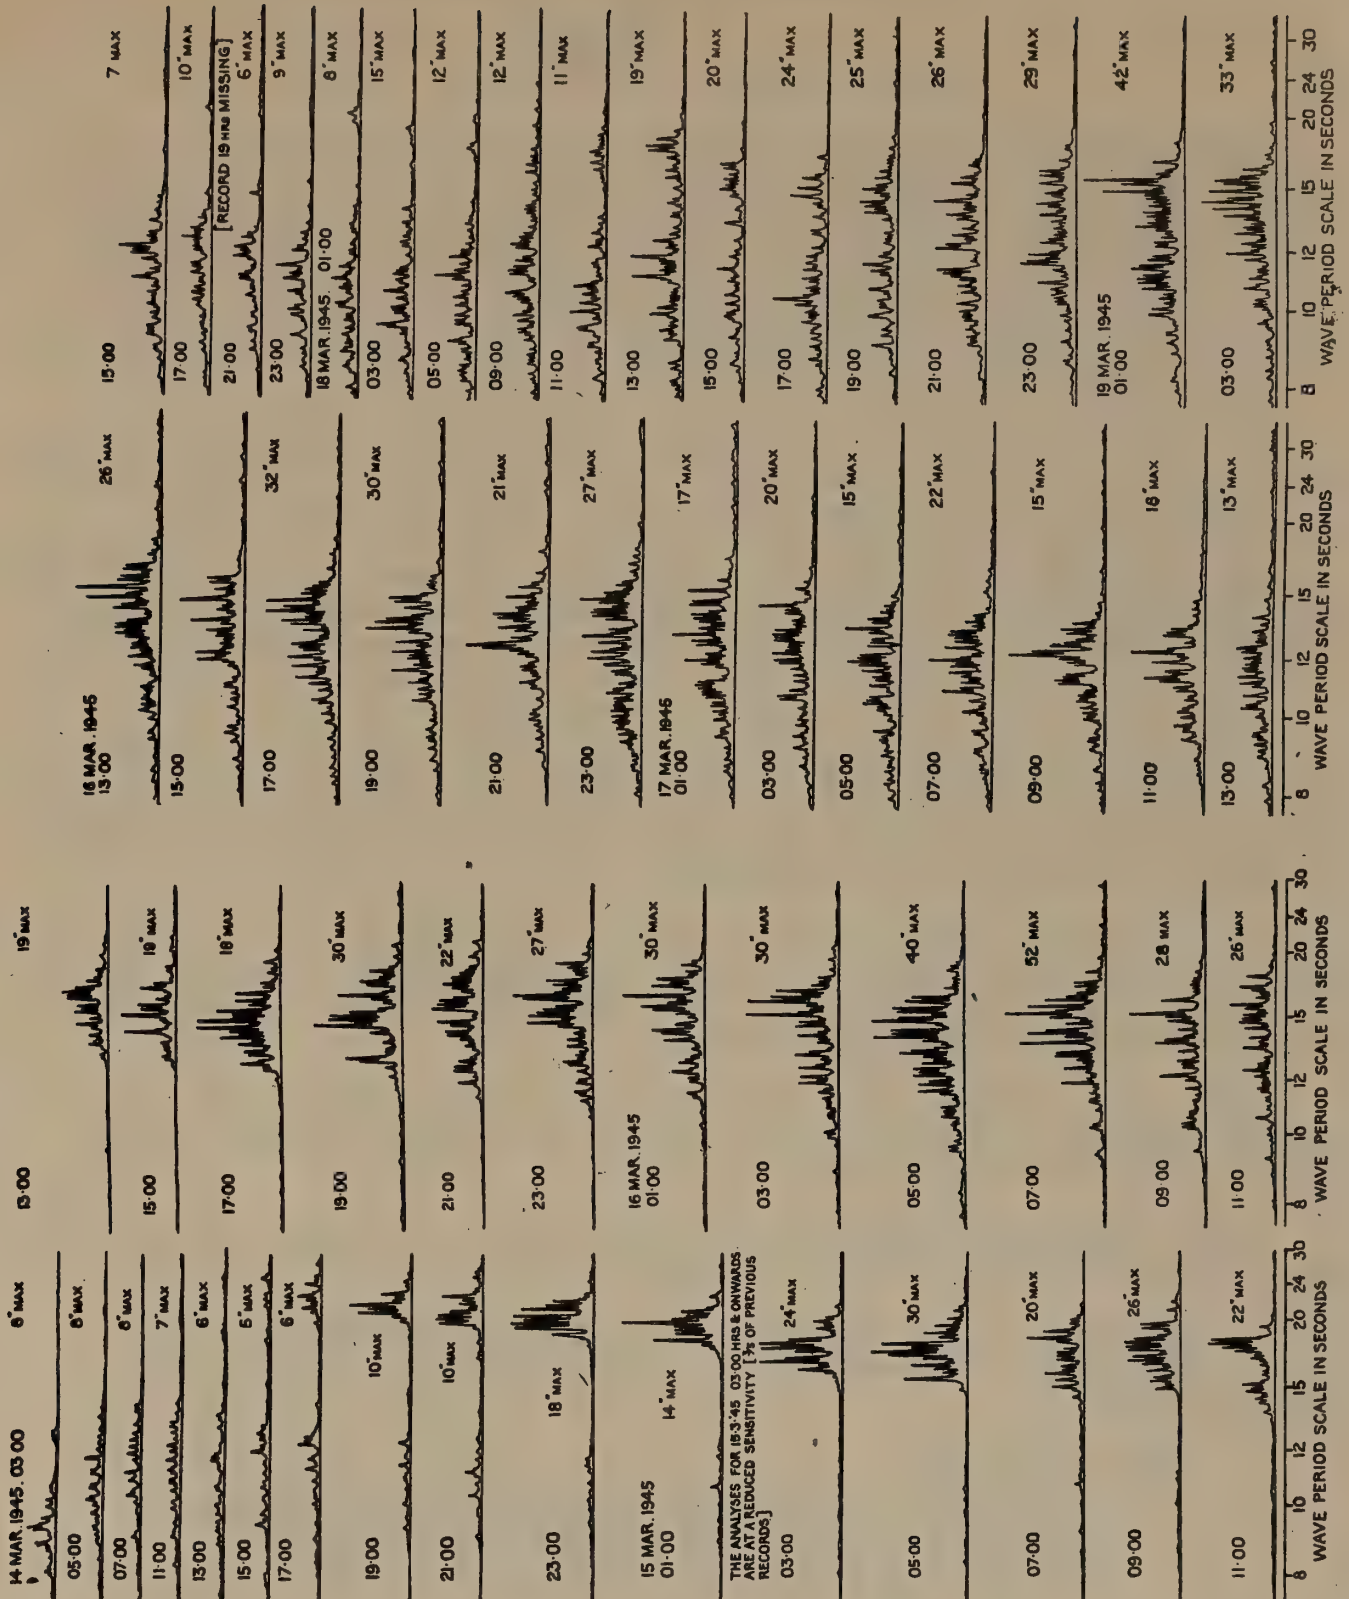 14 MAR. 1945. 03·00
8" MAX
05·00
8" MAX
07·00
8" MAX
11·00
7" MAX
13·00
6" MAX
15·00
5" MAX
17·00
6" MAX
19·00
10" MAX
21·00
10" MAX
23·00
18" MAX
15 MAR. 1945
01·00
14" MAX
THE ANALYSES FOR 15·3·'45 03·00 HRS & ONWARDS
ARE AT A REDUCED SENSITIVITY [⅗ OF PREVIOUS
RECORDS]
03·00
24" MAX
05·00
30" MAX
07·00
20" MAX
09·00
26" MAX
11·00
22" MAX
8 10 12 15 20 24 30
WAVE PERIOD SCALE IN SECONDS
13·00
19" MAX
15·00
19" MAX
17·00
18" MAX
19·00
30" MAX
21·00
22" MAX
23·00
27" MAX
16 MAR. 1945
01·00
30" MAX
03·00
30" MAX
05·00
40" MAX
07·00
52" MAX
09·00
28 MAX
11·00
26" MAX
8 10 12 15 20 24 30
WAVE PERIOD SCALE IN SECONDS
16 MAR. 1945
13·00
26" MAX
15·00
17·00
32" MAX
19·00
30" MAX
21·00
21" MAX
23·00
27" MAX
17 MAR. 1945
01·00
17" MAX
03·00
20" MAX
05·00
15" MAX
07·00
22" MAX
09·00
15" MAX
11·00
18" MAX
13·00
13" MAX
8 10 12 15 20 24 30
WAVE PERIOD SCALE IN SECONDS
15·00
7 MAX
17·00
10" MAX
[RECORD 19 HRS MISSING]
21·00
6" MAX
23·00
9" MAX
18 MAR. 1945. 01·00
8" MAX
03·00
15" MAX
05·00
12" MAX
09·00
12" MAX
11·00
11" MAX
13·00
19" MAX
15·00
20" MAX
17·00
24" MAX
19·00
25" MAX
21·00
26" MAX
23·00
29" MAX
19 MAR. 1945
01·00
42" MAX
03·00
33" MAX
8 10 12 15 20 24 30
WAVE PERIOD SCALE IN SECONDS